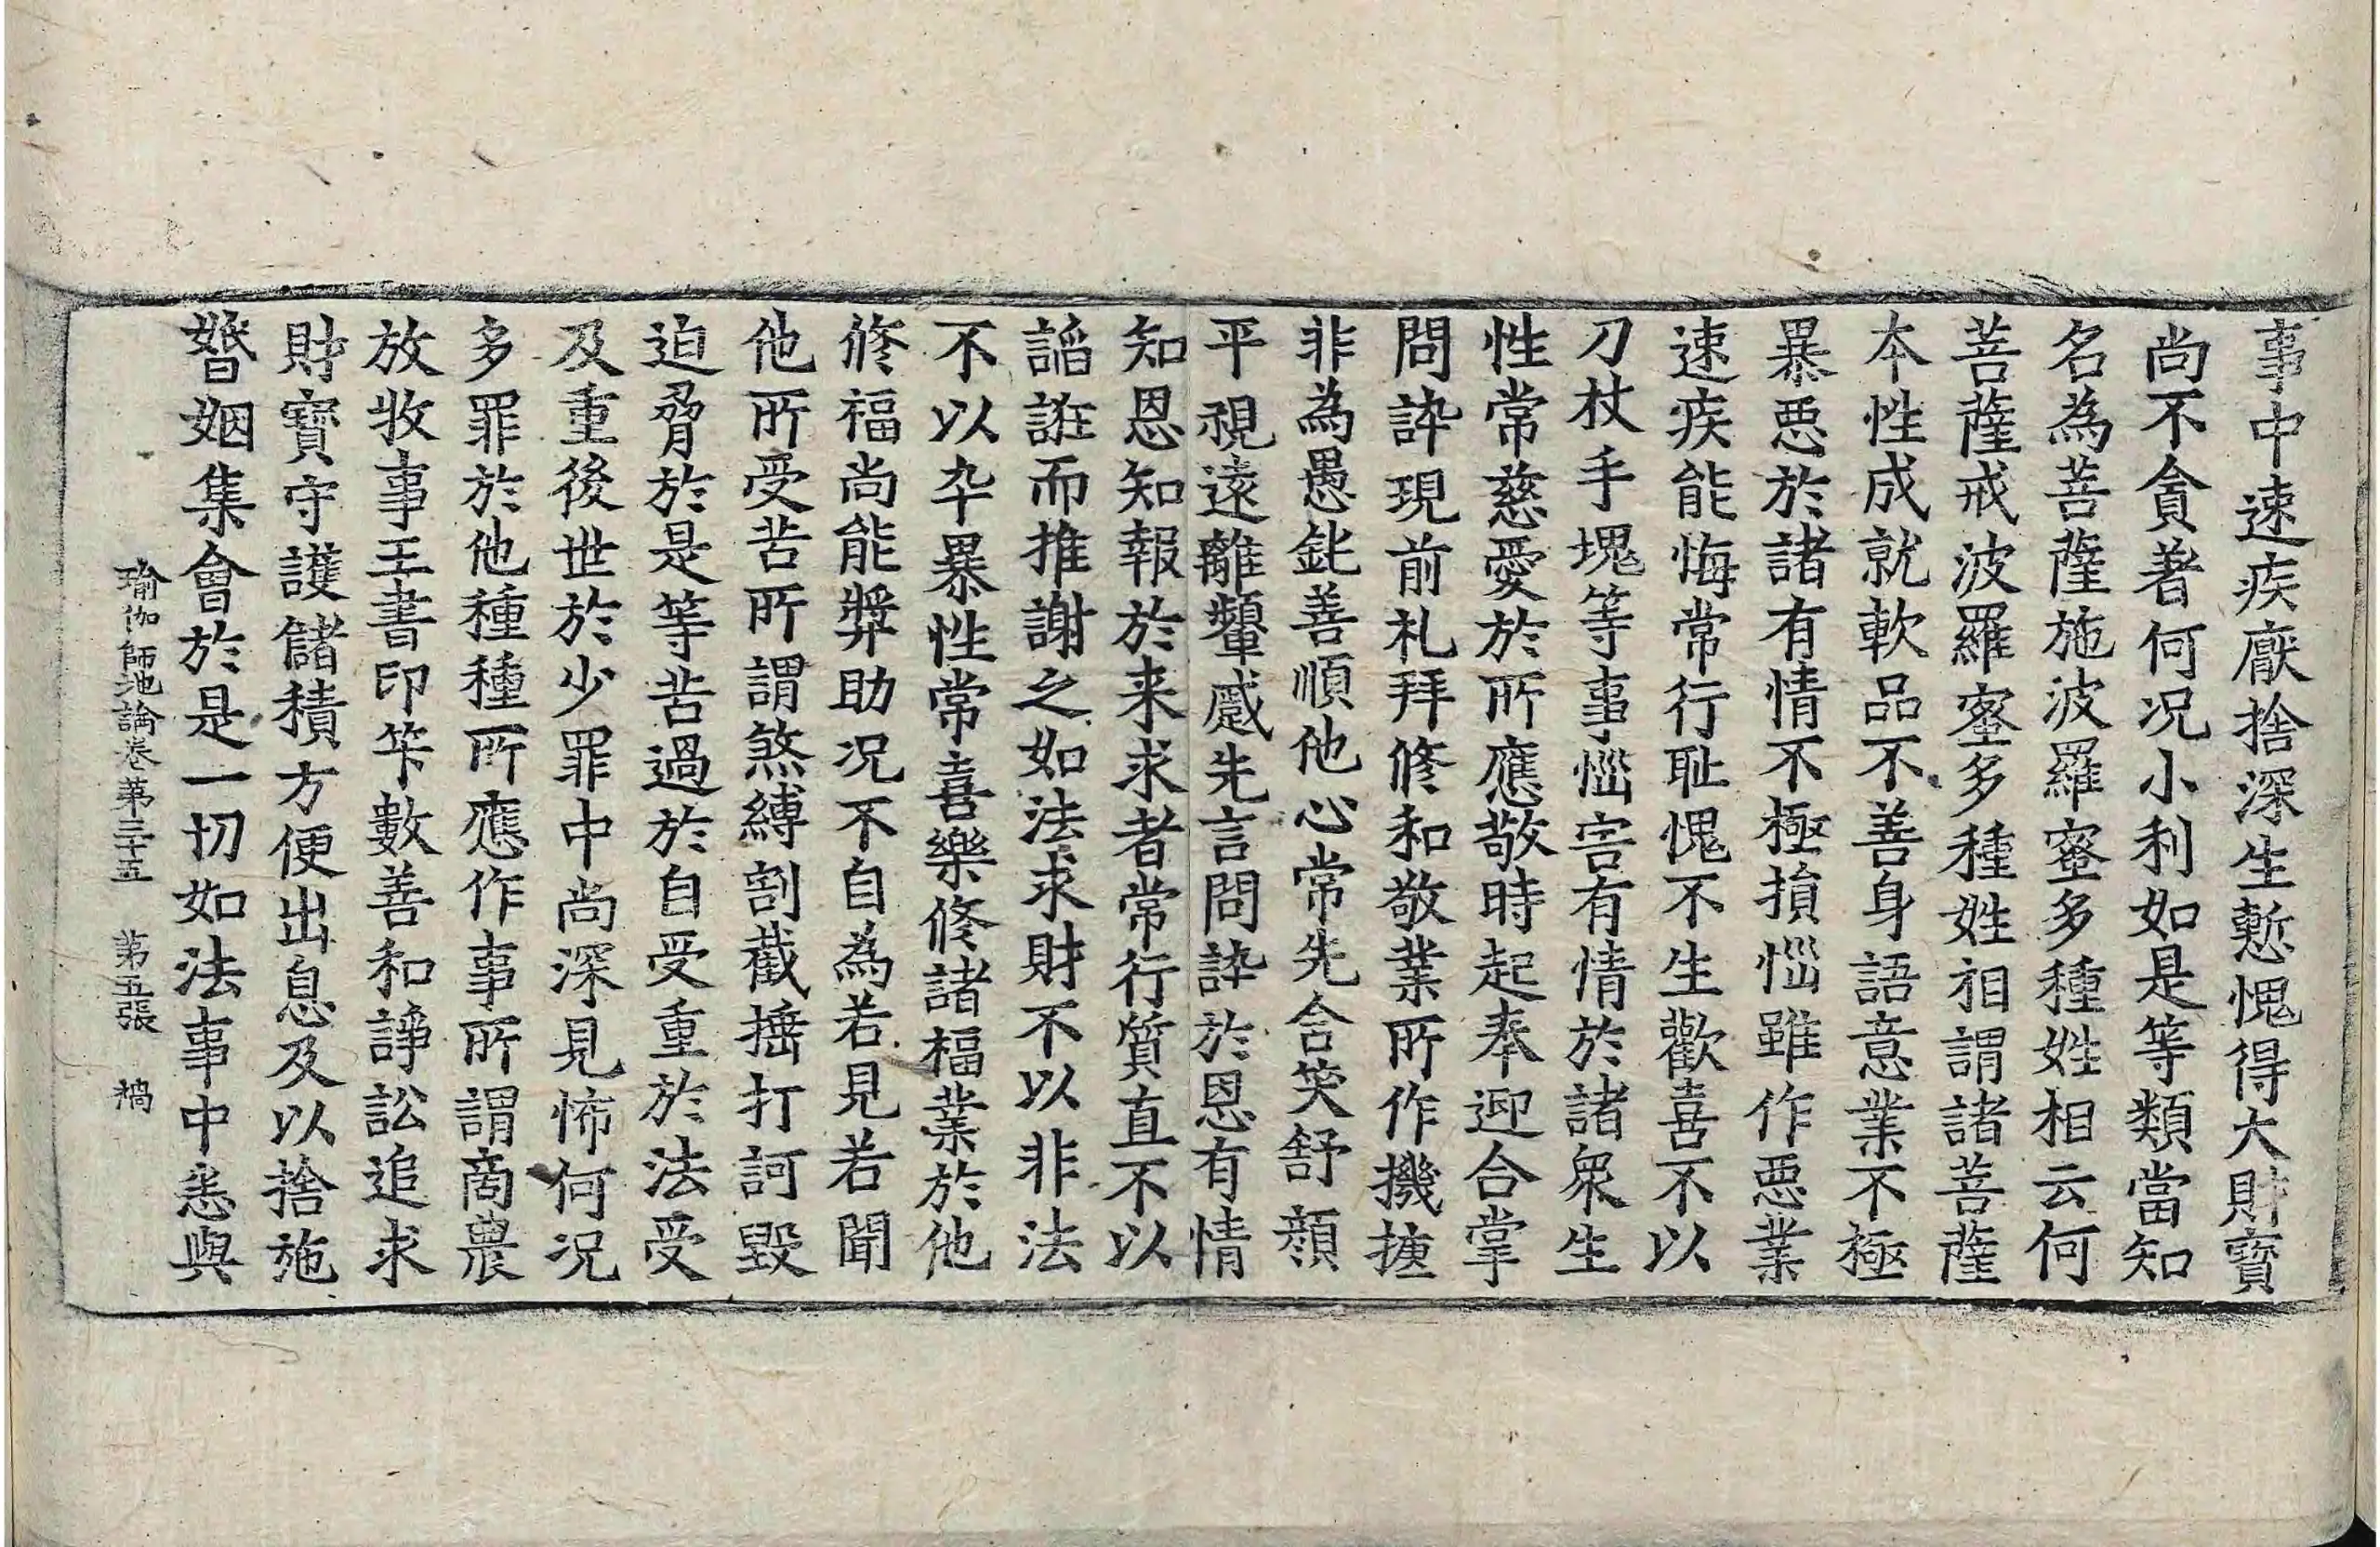 事中速疾厭捨深生慙愧得大財寶
尚不貪著何況小利如是等類當知
名為菩薩施波羅蜜多種姓相云何
菩薩戒波羅蜜多種姓相謂諸菩薩
本性成就軟品不善身語意業不極
暴惡於諸有情不極損惱雖作惡業
速疾能悔常行耻愧不生歡喜不以
刀杖手塊等事惱害有情於諸衆生
性常慈愛於所應敬時起奉迎合掌
問訊現前礼拜修和敬業所作機捷
非為愚鈍善順他心常先含笑舒顔
平視遠離顰蹙先言問訊於恩有情
知恩知報於来求者常行質直不以
諂誑而推謝之如法求財不以非法
不以卒暴性常喜樂修諸福業於他
修福尚能獎助況不自為若見若聞
他所受苦所謂煞縛割截捶打訶毀
迫脅於是等苦過於自受重於法受
及重後世於少罪中尚深見怖何況
多罪於他種種所應作事所謂商農
放牧事王書印筭數善和諍訟追求
財寶守護儲積方便出息及以捨施
婚姻集會於是一切如法事中悉與
瑜伽師地論卷第三十五　第五張